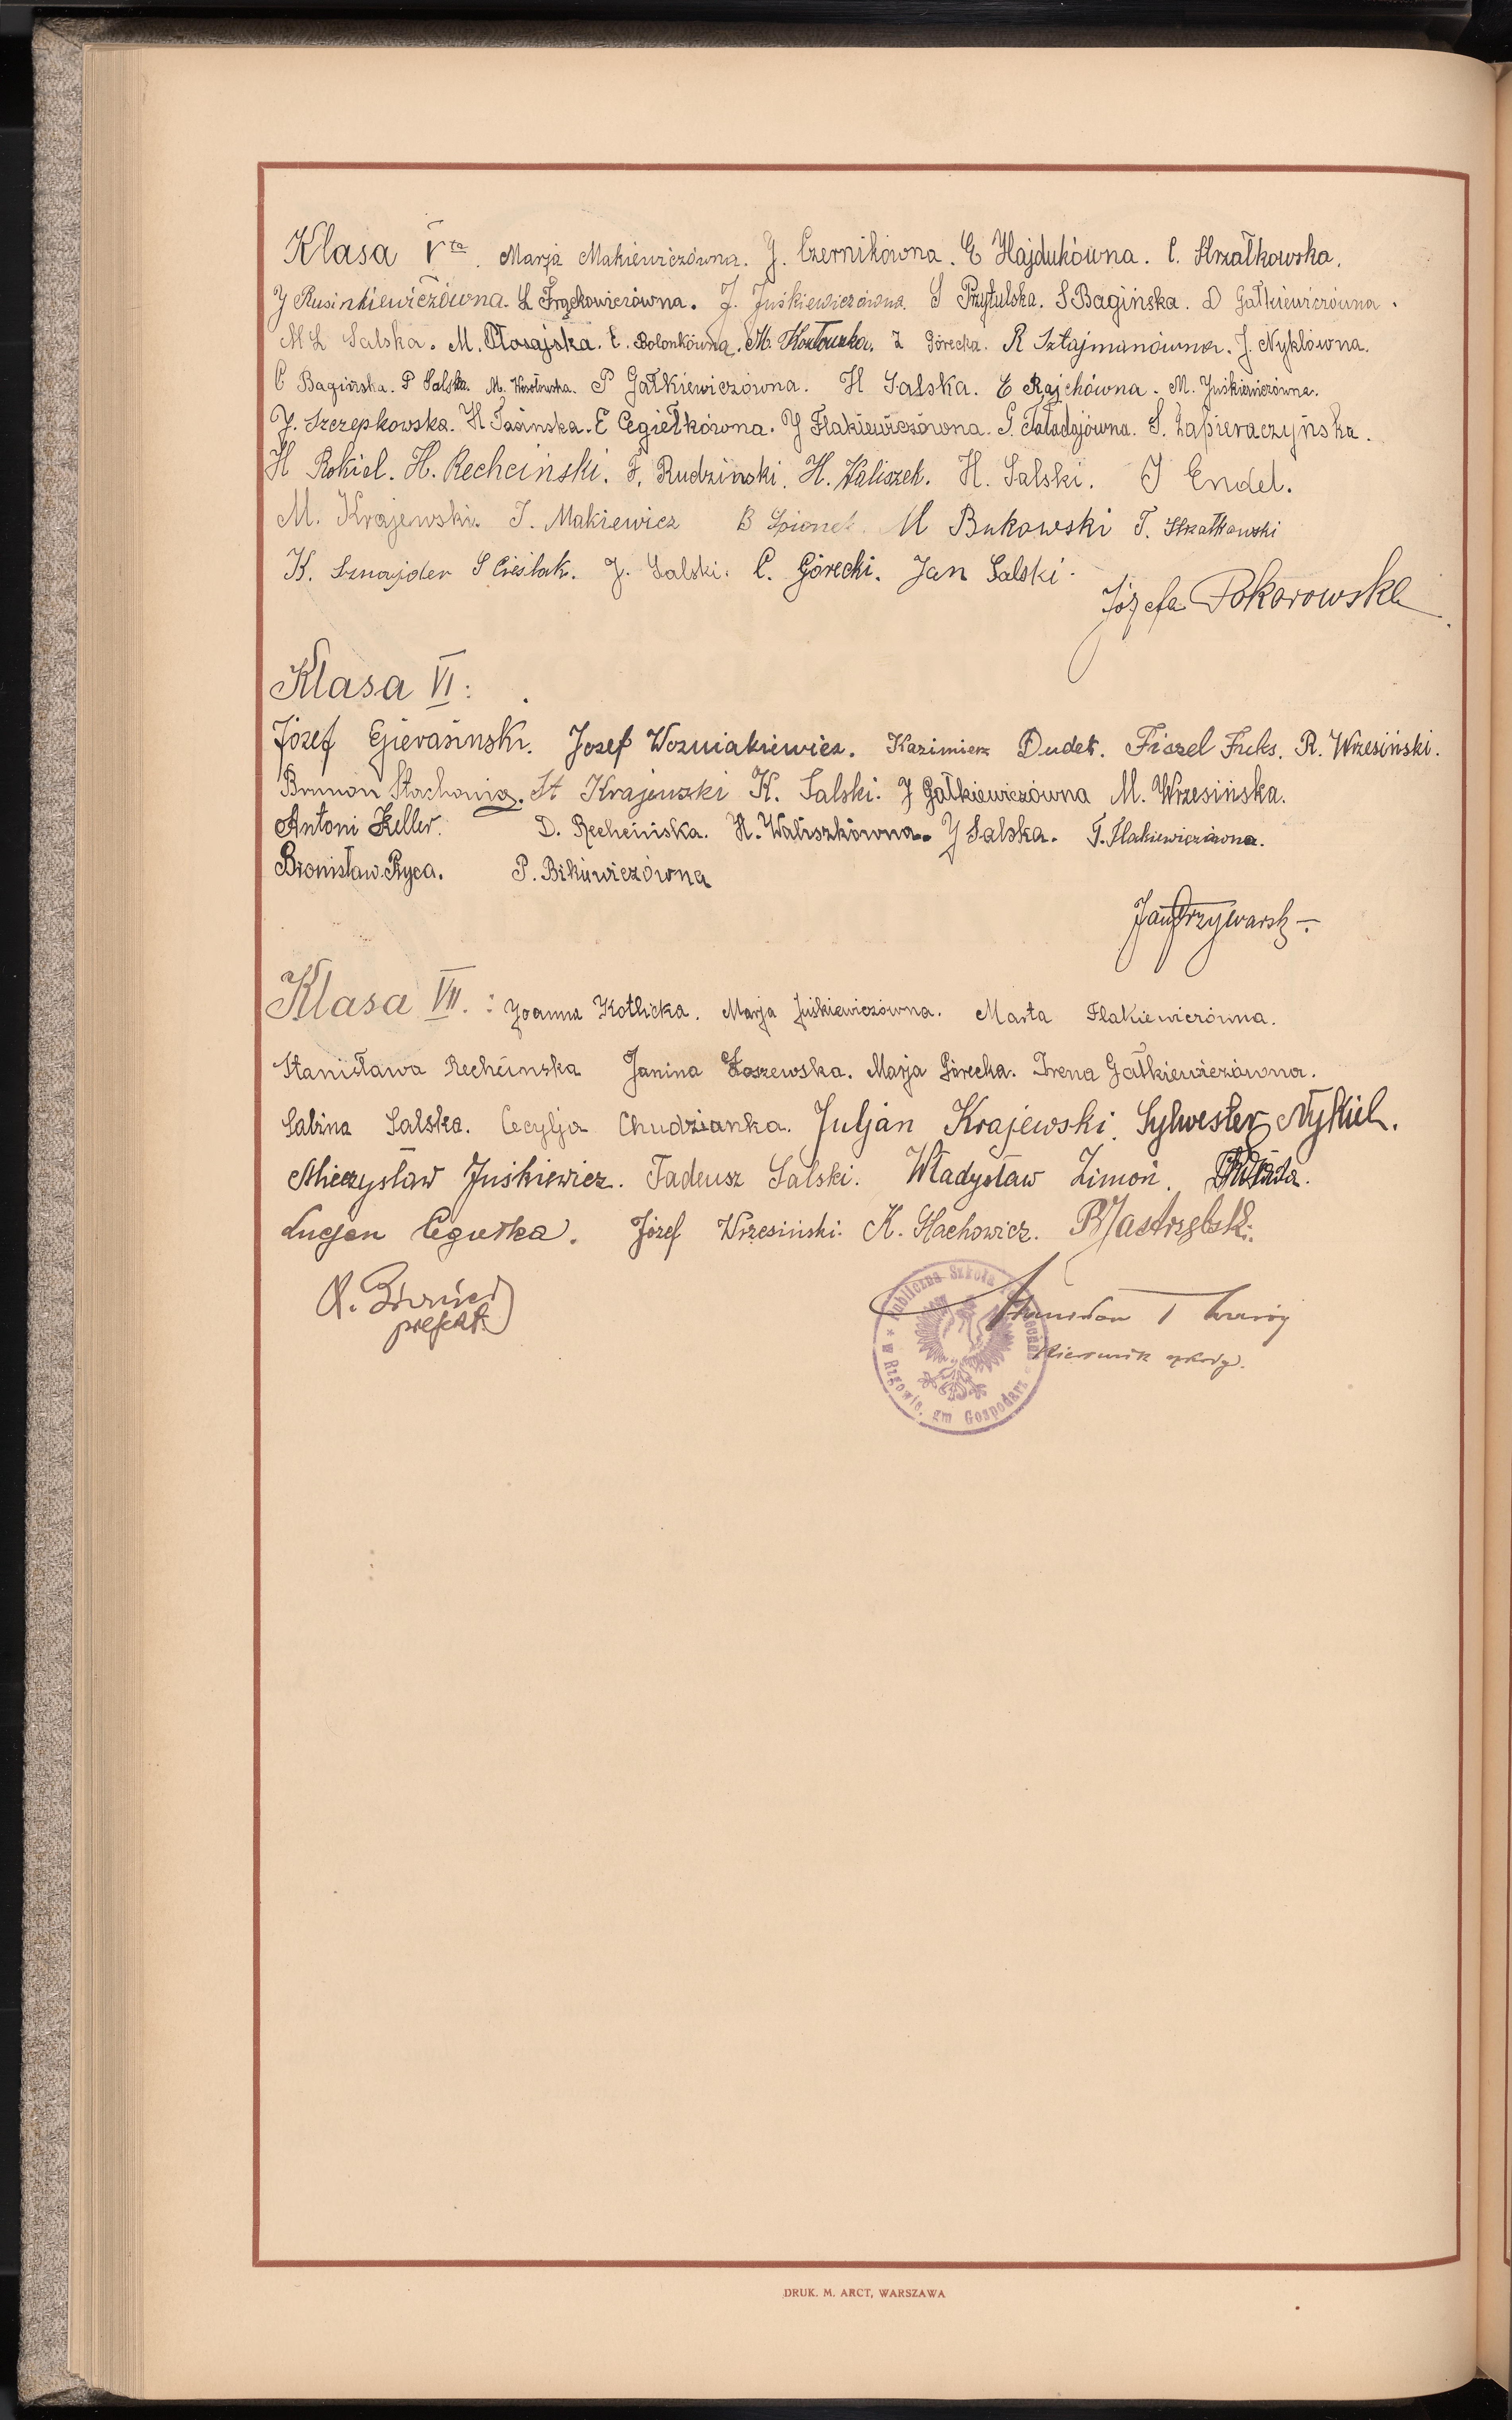 Klasa Vta. Marja Makiewiczówna. J. Czernikówna. E Hajdukówna. C. Strzałkowska.
J Rusinkiewiczówna. L Frąckowiczówna. J. Juśkiewiczówna. S Przytulska. S Bagińska. D Gałkiewiczówna.
M Ł Salska. M. Płosajska. E. Bolonkówna. M. Kozłowska. Z Górecka. R Sztajmanówna. J. Nyklówna.
C Bagińska. P Salska. M. Kozłowska. P Gałkiewiczówna. H Salska. E Rajchówna. M. Juśkiewiczówna.
J. Szczepkowska. H Jasinska. E Cegiełkówna. J Flakiewiczówna. G. Tatadajówna. S. Zapieraczyńska.
H Rokiel. H. Rechcinski. F. Rudzinski. H. Waliszek. H. Salski. J Endel.
M. Krajewski. J. Makiewicz B Spionek. M Bukowski T. Strzałkowski
K. Sznajder S Cieślak. J. Salski. C. Górecki. Jan Salski.
Józefa Pokorowska
Klasa VI:
Józef Gierasinski. Jozef Wozniakiewicz. Kazimierz Dudek. Fiszel Fuks. R. Wrzesiński.
Brunon Stachowicz. St Krajewski K. Salski. J Gałkiewiczówna M. Wrzesińska.
Antoni Keller. D. Rechcińska. H. Waliszkówna. J Salska. T. Flakiewiczówna.
Bronisław. Ryca. P. Bikiewiczówna
Jan
Klasa VII. : Joanna Kotlicka. Marja Juśkiewiczówna. Marta Flakiewiczówna.
Stanisława Rechcinska Janina Zaszewska. Marja Górecka. Irena Gałkiewiczówna.
Sabina Salska. Cecylja Chudzianka. Juljan Krajewski. Sylwester Nykiel.
Mieczysław Juśkiewicz. Tadeusz Salski. Władysław Zimoń.
Lucjan Cegiełka. Józef Wrzesiński. K. Stachowicz. B Jastrzębski.
prefekt
Stanisław
Kierownik szkoły.
Publiczna Szkoła Powszechna * w Rzgowie, gm Gospodarz *
DRUK. M. ARCT, WARSZAWA